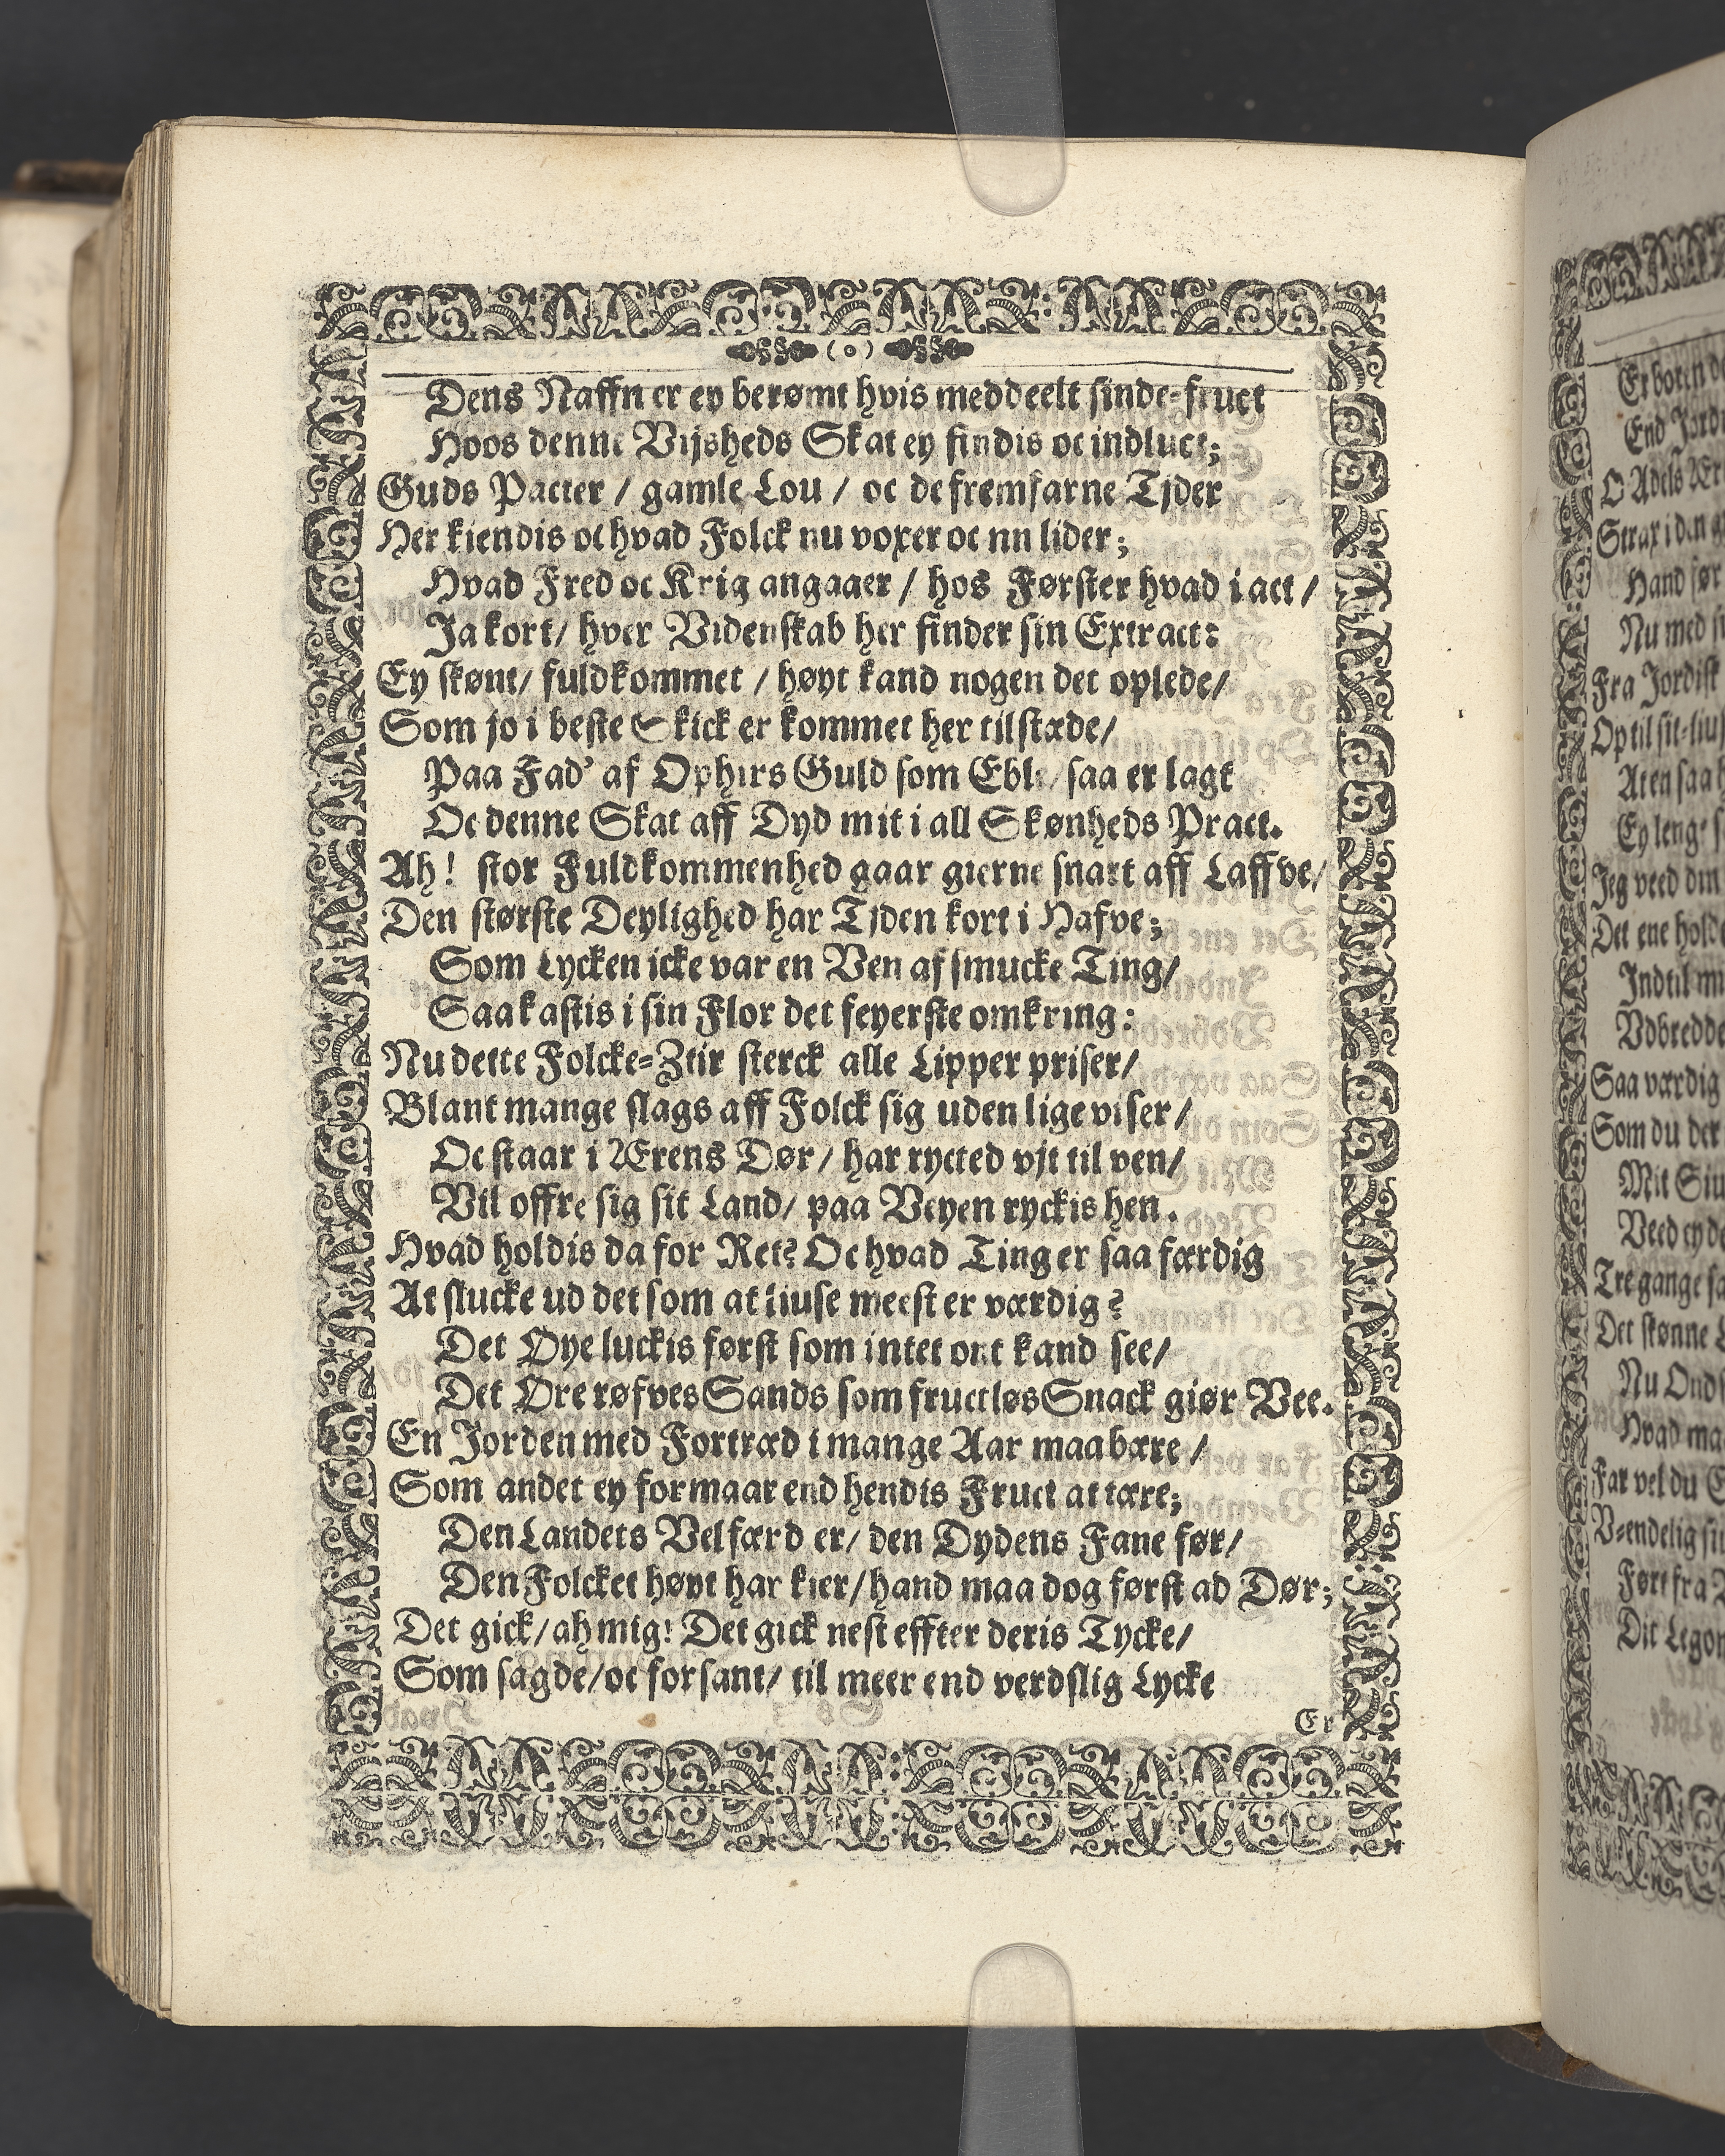 (o)
Dens Naffn er ey berømt hvis meddeelt sinde-fruct
Hoos denne Vijsheds Skat ey findis oc indluct;
Guds Pacter / gamle Lou / oc de fremfarne Tjder
Her kiendis oc hvad Folck nu voxer oc nu lider;
Hvad Fred oc Krig angaaer / hos Førster hvad i act /
Ja kort / hver Videnskab her finder sin Extract:
Ey skønt / fuldkommet / høyt kand nogen det oplede /
Som jo i beste Skick er kommet her tilstæde /
Paa Fad' af Ophirs Guld som Eble / saa er lagt
Oc denne Skat aff Dyd mit i all Skønheds Pract.
Ah! stor Fuldkommenhed gaar gierne snart aff Laffve /
Den største Deylighed har Tjden kort i Hafve;
Som Lycken icke var en Ven af smucke Ting /
Saa kastis i sin Flor det feyerste omkring:
Nu dette Folcke-Ztir sterck alle Lipper priser /
Blant mange slags aff Folck sig uden lige viser /
Oc staar i Ærens Dør / har rycted vjt til ven /
Vil offre sig sit Land / paa Veyen ryckis hen.
Hvad holdis da for Ret? Oc hvad Ting er saa færdig
At slucke ud det som at liuse meest er værdig?
Det Øye luckis først som intet ont kand see /
Det Øre røfves Sands som fructløs Snack giør Vee.
En Jorden med Fortræd i mange Aar maa bære /
Som andet ey formaar end hendis Fruct at tære;
Den Landets Velfærd er / den Dydens Fane før /
Den Folcket høyt har kier / hand maa dog først ad Dør;
Det gick / ah mig! Det gick nest effter deris Tycke /
Som sagde / oc forsant / til meer end verdslig Lycke
Er